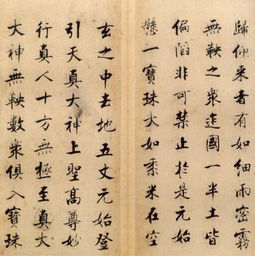 歸仰來者有如細雨密霧
無鞅之衆迮國一半土皆
偏陷非可禁止於是元始
懸一寶珠大如黍米在空
玄之中去地五丈元始登
引天真大神上聖高尊妙
行真人十方無極至真大
大神無鞅數衆俱入寶珠